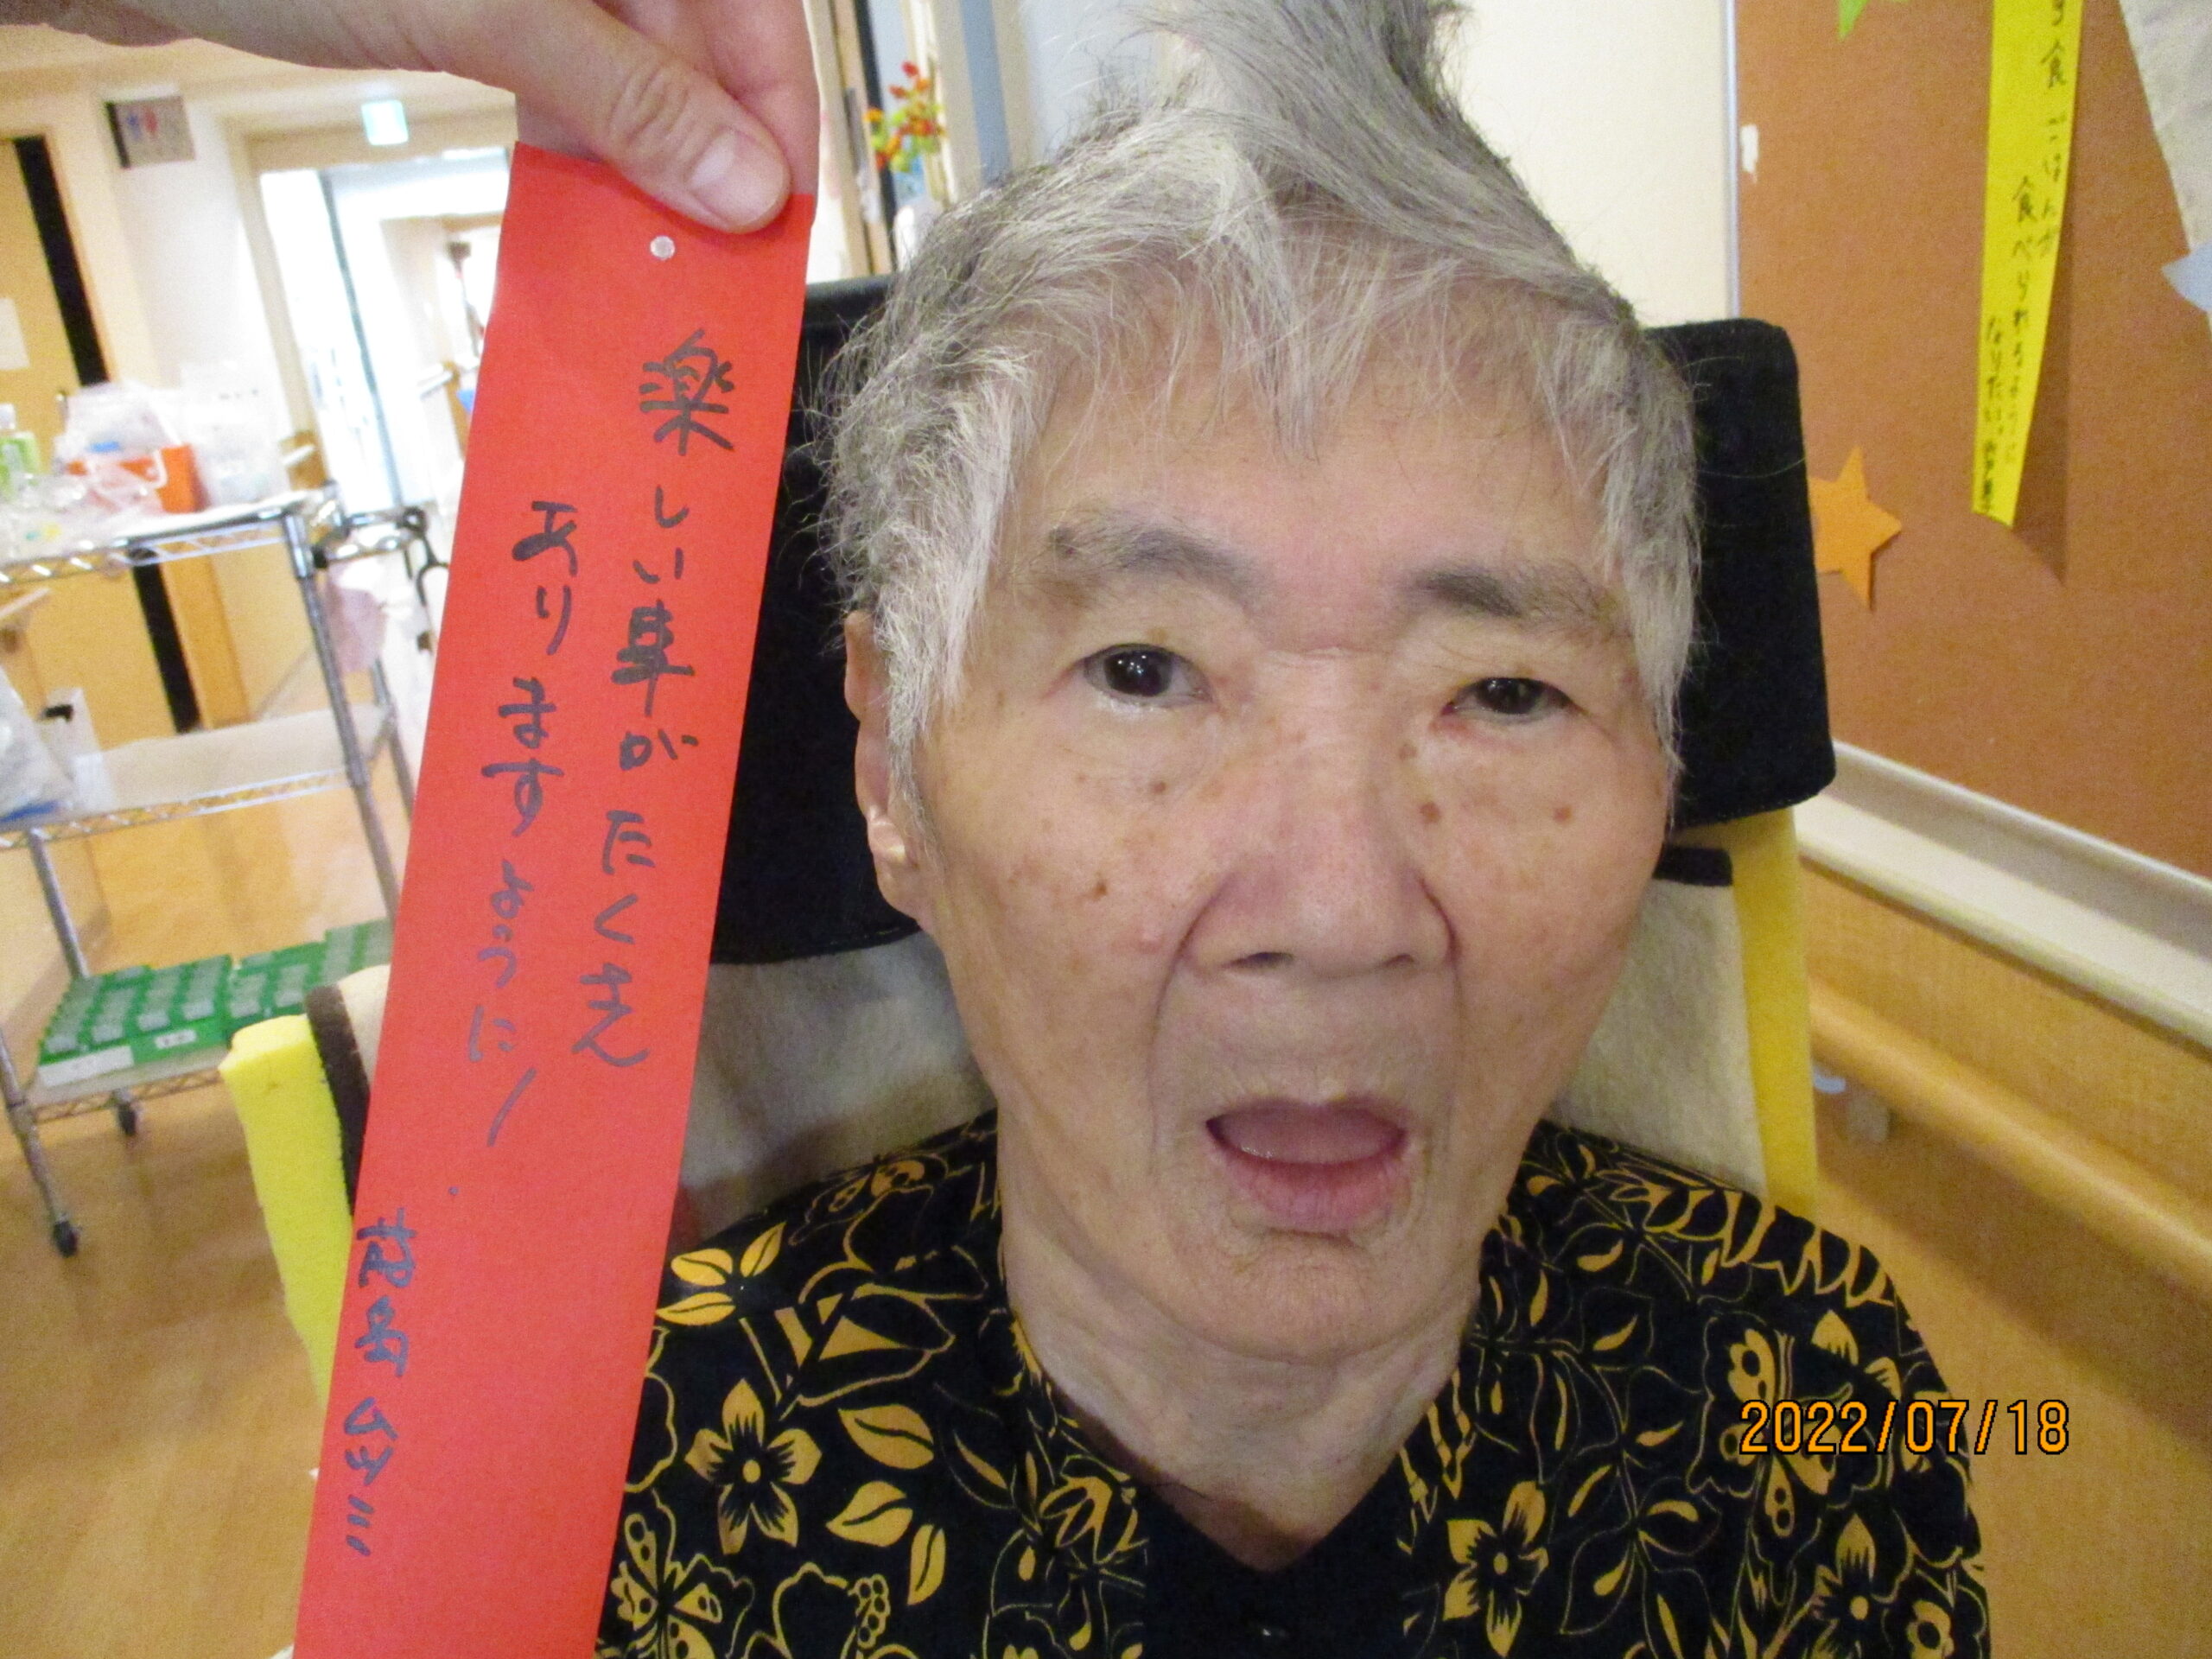 楽しい事がたくさん
ありますように!
ムツミ
3食ごはんが
食べられるように
なりたい
2022/07/18